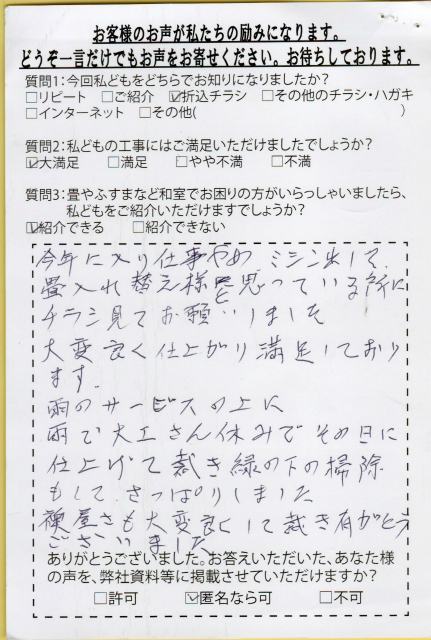 お客様のお声が私たちの励みになります。
どうぞ一言だけでもお声をお寄せください。お待ちしております。
質問1：今回私どもをどちらでお知りになりましたか？
□リピート　□ご紹介　☑折込チラシ　□その他のチラシ・ハガキ
□インターネット　□その他(　　　　　　　　　　)
質問2：私どもの工事にはご満足いただけましたでしょうか？
☑大満足　□満足　□やや不満　□不満
質問3：畳やふすまなど和室でお困りの方がいらっしゃいましたら、
私どもをご紹介いただけますでしょうか？
☑紹介できる　□紹介できない
今年に入り仕事やめ ミシン出して
畳入れ替え様と思っている所に
チラシ見てお願いしました
大変良く仕上がり満足しており
ます.
雨のサービスの上に
雨で大工さん休みでその日に
仕上げて裁き縁の下の掃除
もして さっぱりしました
襖屋さも大変良くして裁き有がとう
ございました
ありがとうございました。お答えいただいた、あなた様
の声を、弊社資料等に掲載させていただけますか？
□許可　☑匿名なら可　□不可